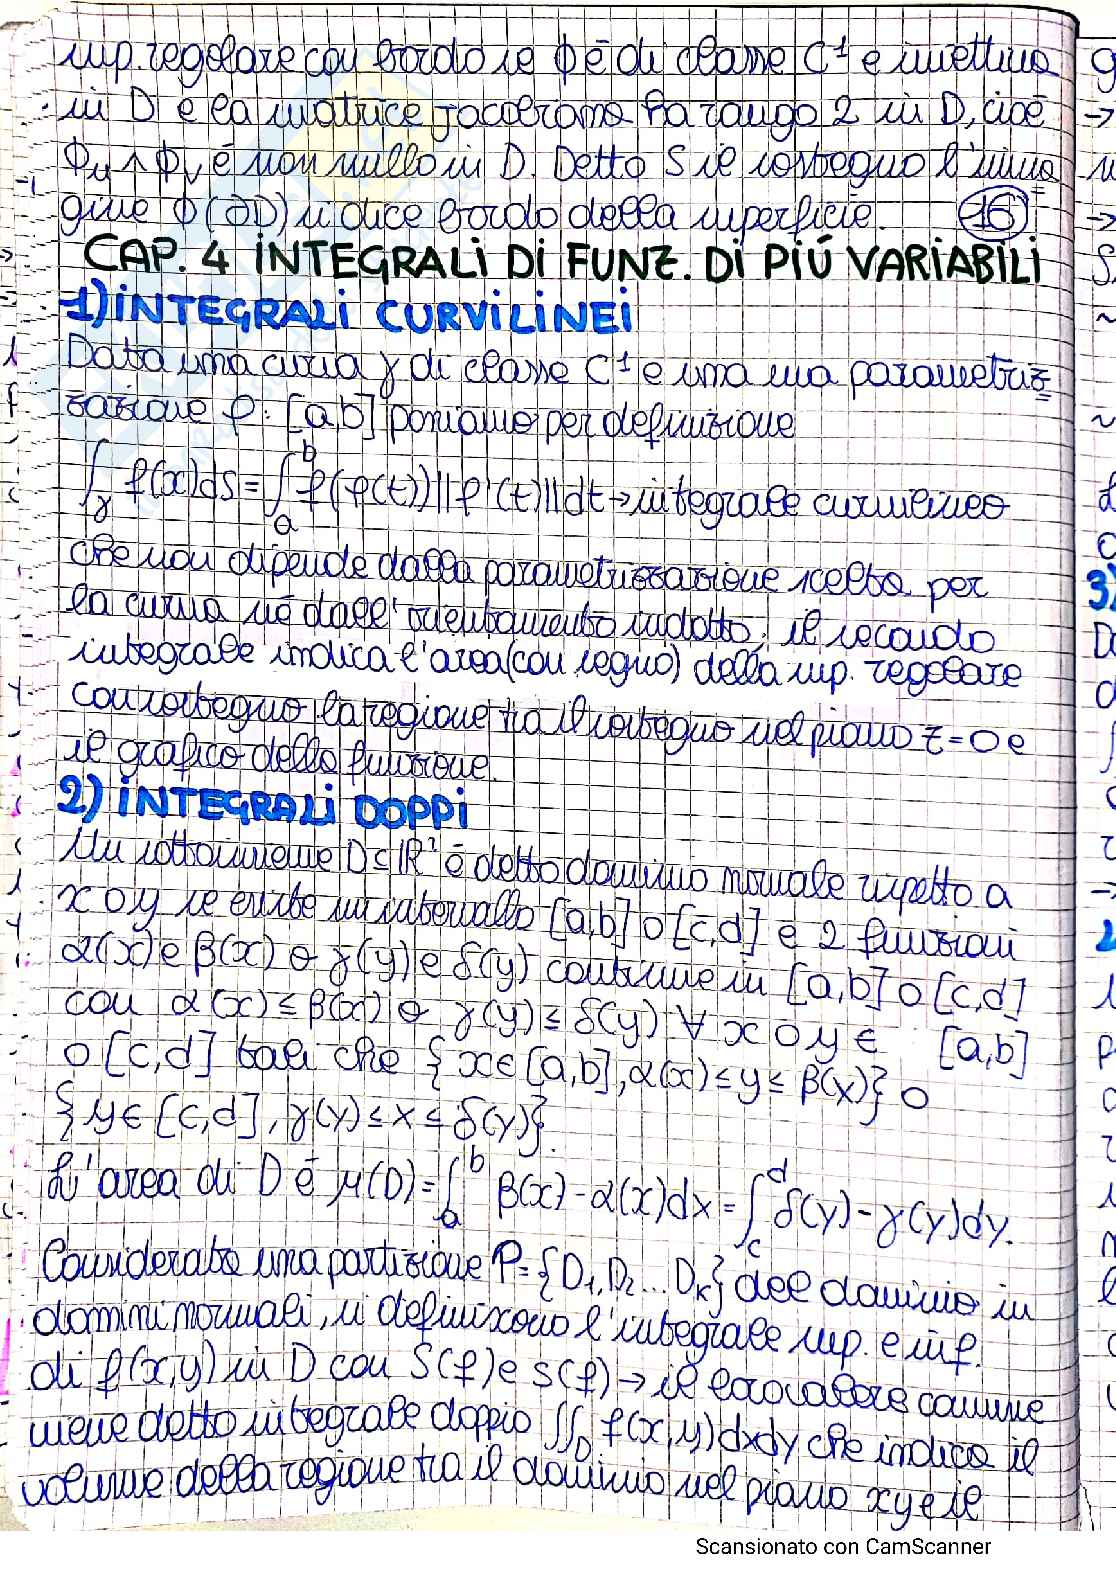 sup. regolare con bordo se φ è di classe C¹ e iniettiva
in D e la matrice jacobiana ha rango 2 in D, cioè
φu ∧ φv è non nullo in D. Detto S il sostegno l'imma
gine φ(∂D) si dice bordo della superficie. 16
CAP. 4 INTEGRALI DI FUNZ. DI PIÚ VARIABILI
1) INTEGRALI CURVILINEI
Data una curva γ di classe C¹ e una sua parametriz
zazione φ: [a,b] poniamo per definizione
∫γ f(x)ds = ∫ₐᵇ f(φ(t))||φ'(t)||dt → integrale curvilineo
che non dipende dalla parametrizzazione scelta per
la curva né dall'orientamento indotto; il secondo
integrale indica l'area (con segno) della sup. regolare
con sostegno la regione tra il sostegno nel piano z=0 e
il grafico della funzione.
2) INTEGRALI DOPPI
Un sottoinsieme D⊆ℝ² è detto dominio normale rispetto a
x o y se esiste un intervallo [a,b] o [c,d] e 2 funzioni
α(x) e β(x) o γ(y) e δ(y) continue in [a,b] o [c,d]
con α(x) ≤ β(x) o γ(y) ≤ δ(y) ∀ x o y ∈ [a,b]
o [c,d] tali che {x∈[a,b], α(x) ≤ y ≤ β(x)} o
{y∈[c,d], γ(y) ≤ x ≤ δ(y)}.
L'area di D è μ(D) = ∫ₐᵇ β(x) - α(x)dx = ∫_c^d δ(y) - γ(y)dy.
Considerata una partizione P={D₁,D₂...Dₖ} del dominio in
domini normali, si definiscono l'integrale sup. e inf.
di f(x,y) in D con S(f) e s(f) → il loro valore comune
viene detto integrale doppio ∬_D f(x,y)dxdy che indica il
volume della regione tra il dominio nel piano xy e il
Scansionato con CamScanner